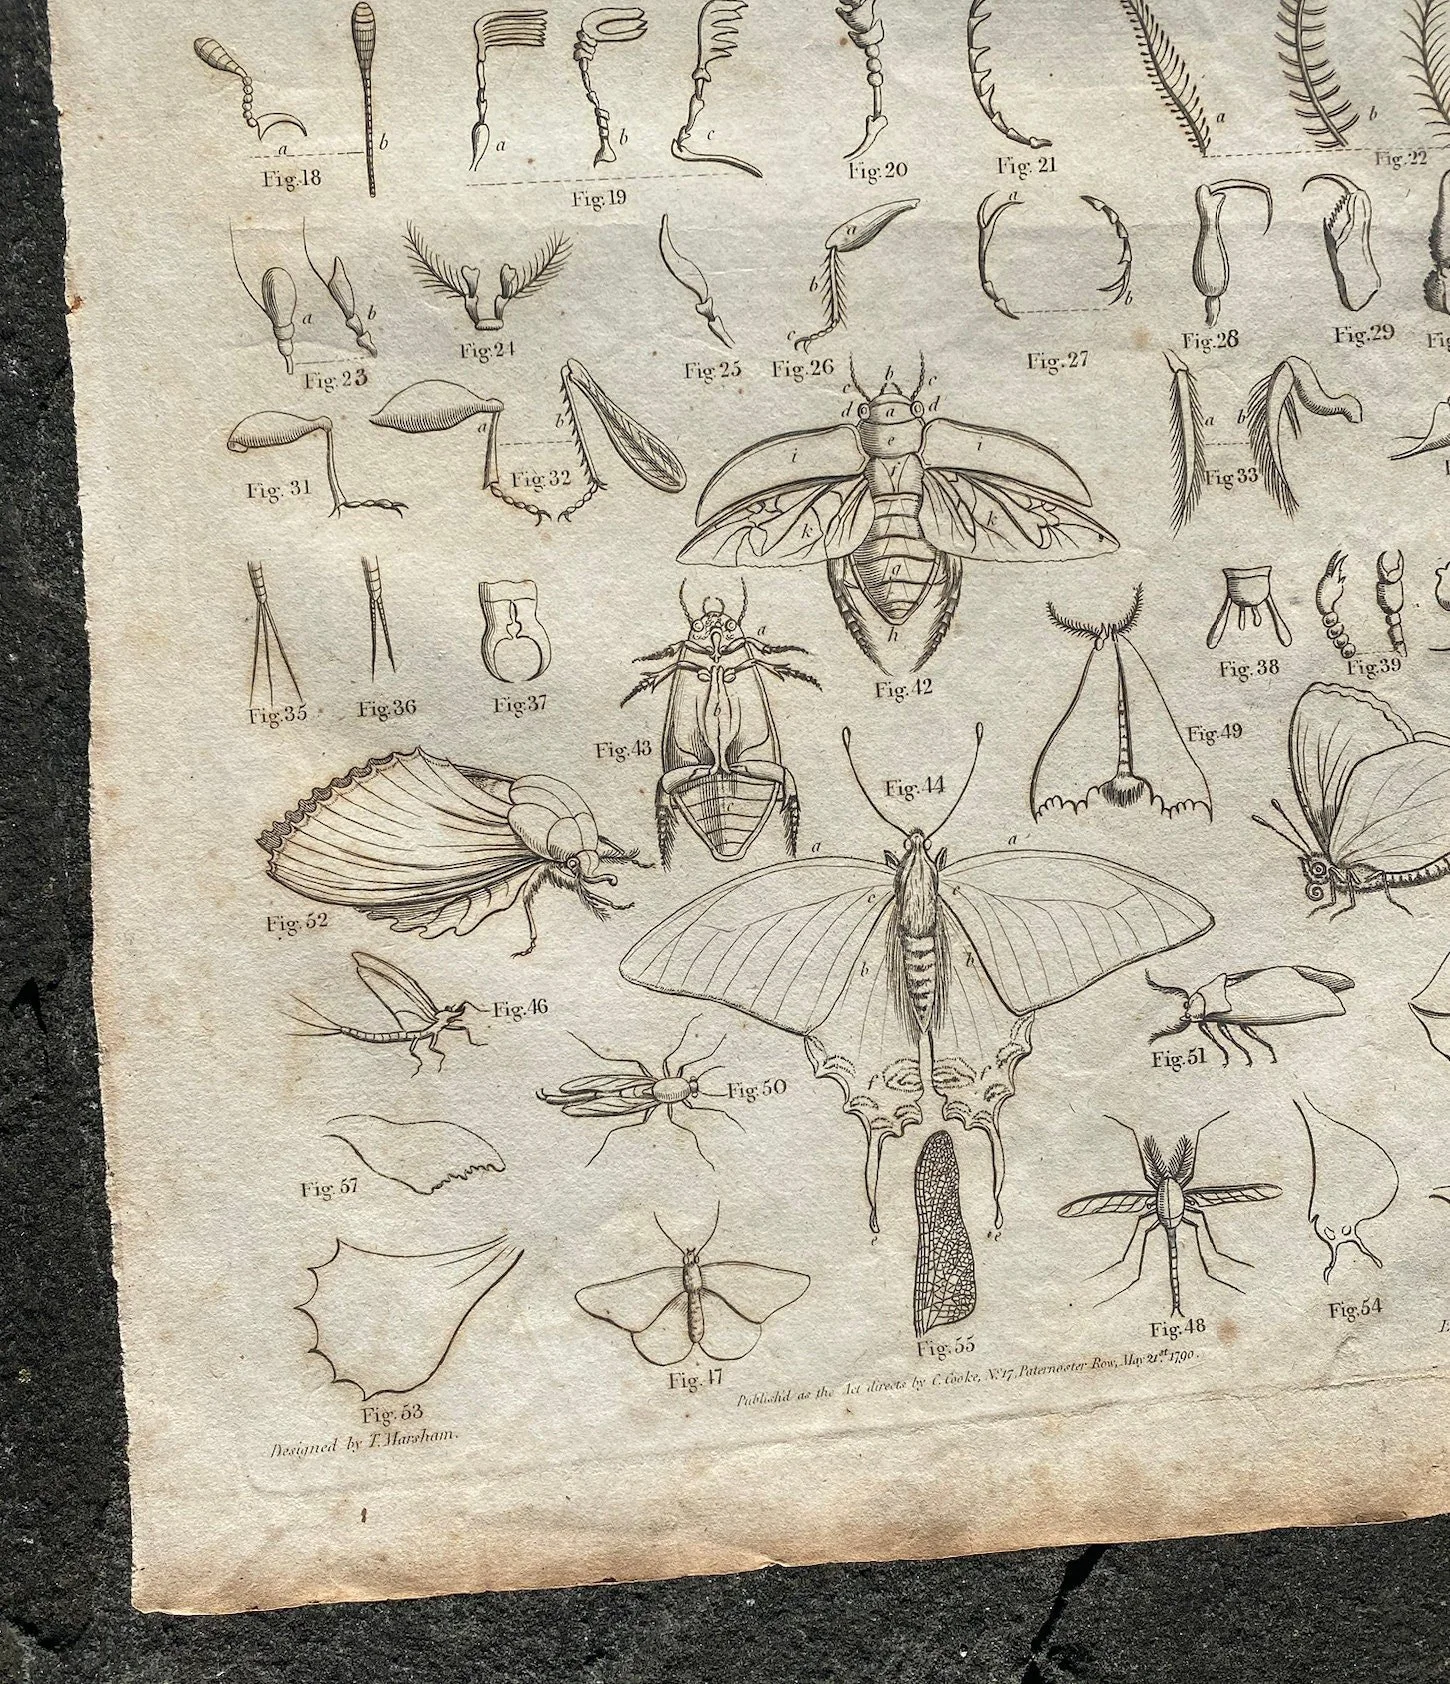 a b
Fig.18
a b c
Fig.19
Fig.20
Fig.21
a b
Fig.22
a b
Fig.23
Fig.24
Fig.25
a b c
Fig.26
a b
Fig.27
Fig.28
Fig.29
Fig. 31
a b
Fig.32
c b c
d a d
i e i
f
k k
g
h
Fig.42
a b
Fig.33
Fig.35
Fig.36
Fig.37
a
b
c
Fig.43
Fig.38
Fig.39
Fig.49
Fig.44
a a
c c
b b
f f
e e
Fig.52
Fig.46
Fig.50
Fig.51
Fig.57
Fig.53
Fig.47
Fig.55
Fig.48
Fig.54
Publish'd as the Act directs by C. Cooke, No. 17, Paternoster Row, May 21st. 1790.
Designed by T. Marsham.